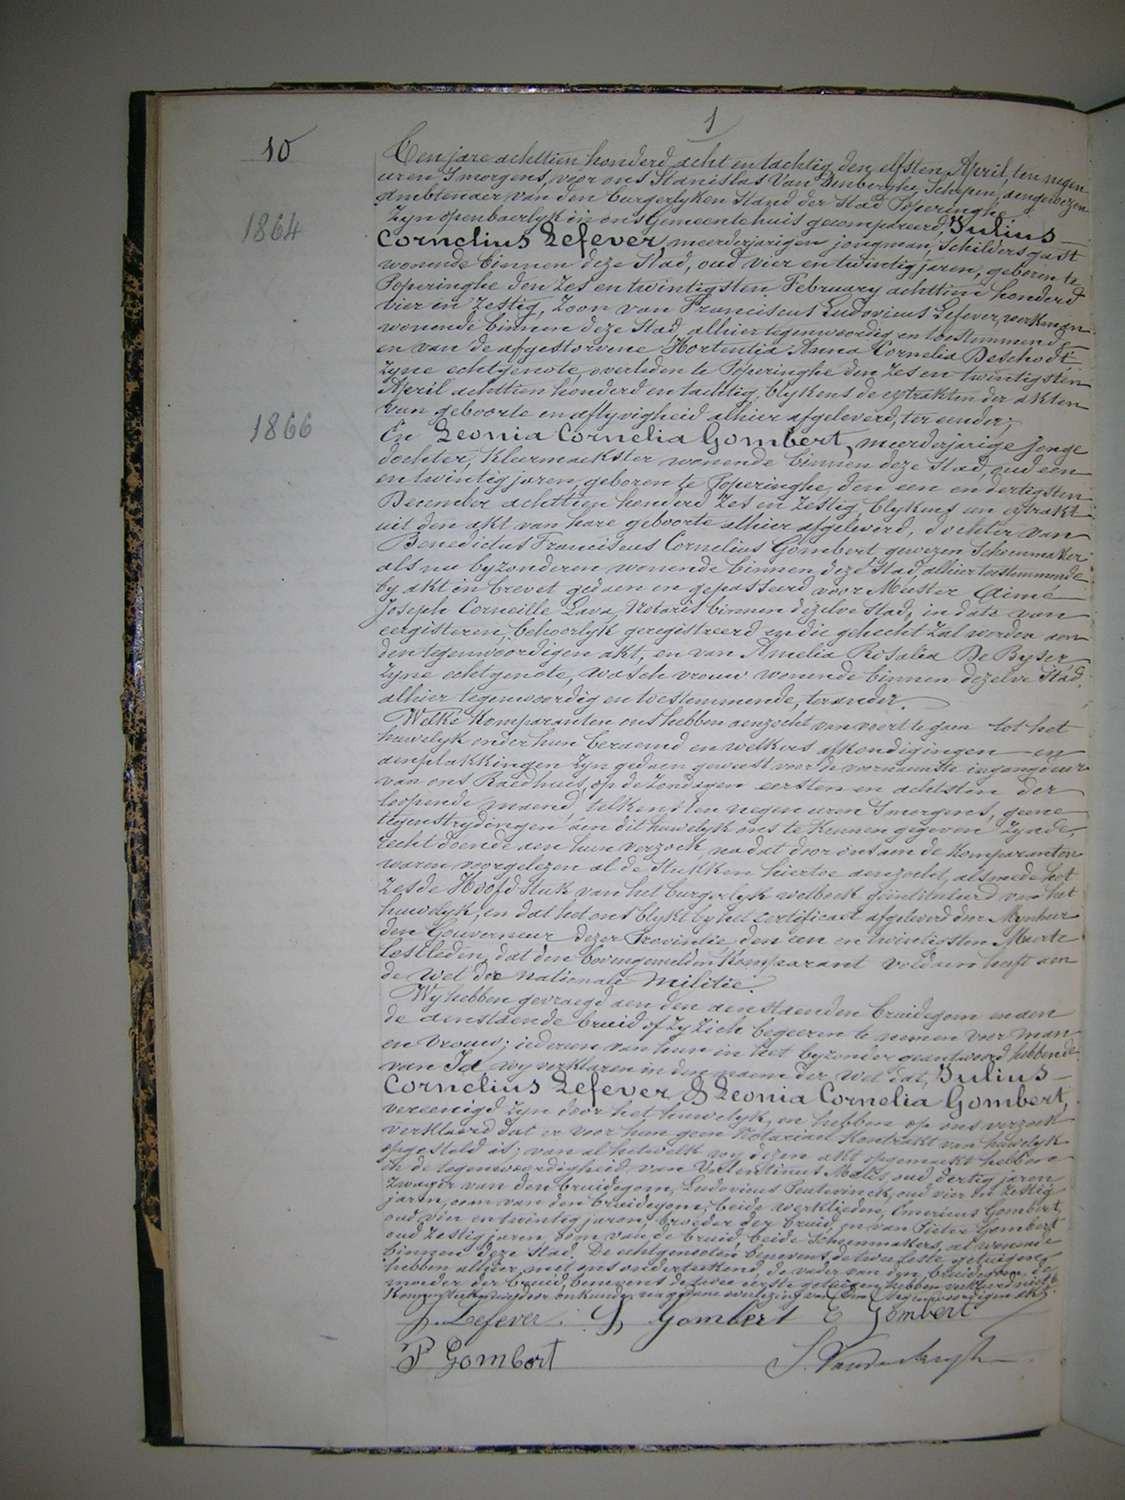 1
10
Ten jare achttien honderd acht en tachtig den elfsten April, ten negen
uren s'morgens, voor ons Stanislas Van Denberghe, Schepen, aangewezen
Ambtenaer van den burgerlyken Stand der Stad Poperinghe
Zyn openbaerlyk in ons Gemeentehuis gecompareerd, Julius
1864
Cornelius Lefever, meerderjarigen jongman, Schildersgast
wonende binnen deze Stad, oud vier en twintig jaren, geboren te
Poperinghe den zes en twintigsten February achttien honderd
vier en zestig, zoon van Franciscus Ludovicus Lefever, werkman
wonende binnen deze Stad, alhier tegenwoordig en toestemmend,
en van de afgestorvene Hortentia Anna Cornelia Deschodt
zyne echtgenote, overleden te Poperinghe den zes en twintigsten
April achttien honderd en tachtig, blykens de extrakten der akten
van geboorte en aflyvigheid alhier afgeleverd, ter eender;
1866
En Leonia Cornelia Gombert, meerderjarige jonge
dochter, Kleermaekster wonende binnen deze Stad, oud een
en twintig jaren, geboren te Poperinghe, den een en dertigsten
December achttien honderd zes en zestig, blykens een extrakt
uit den akt van hare geboorte alhier afgeleverd, dochter van
Benedictus Franciscus Cornelius Gombert gewezen Schoenmaker
als nu byzonderen wonende binnen deze Stad, alhier toestemmende
by akt in brevet gedaen en gepasseerd voor Meester Aimé
Joseph Corneille Leva, Notaris binnen dezelve Stad, in date van
eergisteren, behoorlyk geregistreerd en die gehecht zal worden aen
den tegenwoordigen akt, en van Amelia Rosalia De Byser
zyne echtgenote, waschvrouw wonende binnen dezelve Stad,
alhier tegenwoordig en toestemmende, ter ander.
Welke Komparanten ons hebben aenzocht van voort te gaen tot het
huwelyk onder hun beraemd en welkers afkondigingen en
aenplakkingen zyn gedaen geweest voor de voornaamste ingangdeur
van ons Raedhuis, op de Zondagen eersten en achtsten der
loopende maend, telkens ten negen uren s'morgens, geene
tegenstrydingen aen dit huwelyk ons te Kennen gegeven zynde,
recht doende aen hun verzoek, nadat door ons aen de Komparanten
waren voorgelezen al de Stukken hiertoe aenzocht, alsmede het
Zesde Hoofdstuk van het burgerlyk wetboek geintituleerd van het
huwelyk, en dat het ons blykt by het certificaat afgeleverd door Mynheer
den Gouverneur dezer Provintie den een en twintigsten Maerte
lestleden, dat den bovengemelden Komparant voldaen heeft aen
de wet der Nationale Militie.
Wy hebben gevraegd aen den aenstaenden bruidegom en aen
de aenstaende bruid of zy zich begeeren te nemen voor man
en vrouw; iedereen van hun in het byzonder geantwoord hebbende
van Ja wy verklaren in den naem der Wet dat, Julius
Cornelius Lefever & Leonia Cornelia Gombert,
vereenigd zyn door het huwelyk, en hebben op ons verzoek
verklaerd dat er voor hun geen Notariael Kontrakt van huwelyk
opgesteld is; van al hetwelk wy dezen akt opgemaekt hebben
in de tegenwoordigheid van Valentinus Maes, oud dertig jaren
zwager van den bruidegom, Ludovicus oud vier en zestig
jaren, oom van den bruidegom, beide werklieden, Emericus Gombert,
oud vier en twintig jaren, broeder der bruid, en van Pieter Gombert
oud zestig jaren, oom van de bruid, beide Schoenmakers, al wonende
binnen deze Stad. De echtgenoten benevens de twee leste getuigen
hebben alhier met ons onderteekend, de vader van den bruidegom, de
moeder der bruid benevens de twee eerste getuigen hebben verklaerd niet te
Konnen door onkunde, na gedane voorlezing van den tegenwoordigen akt.
J. Lefever. L Gombert E Gombert
P Gombert S. Vandenberghe